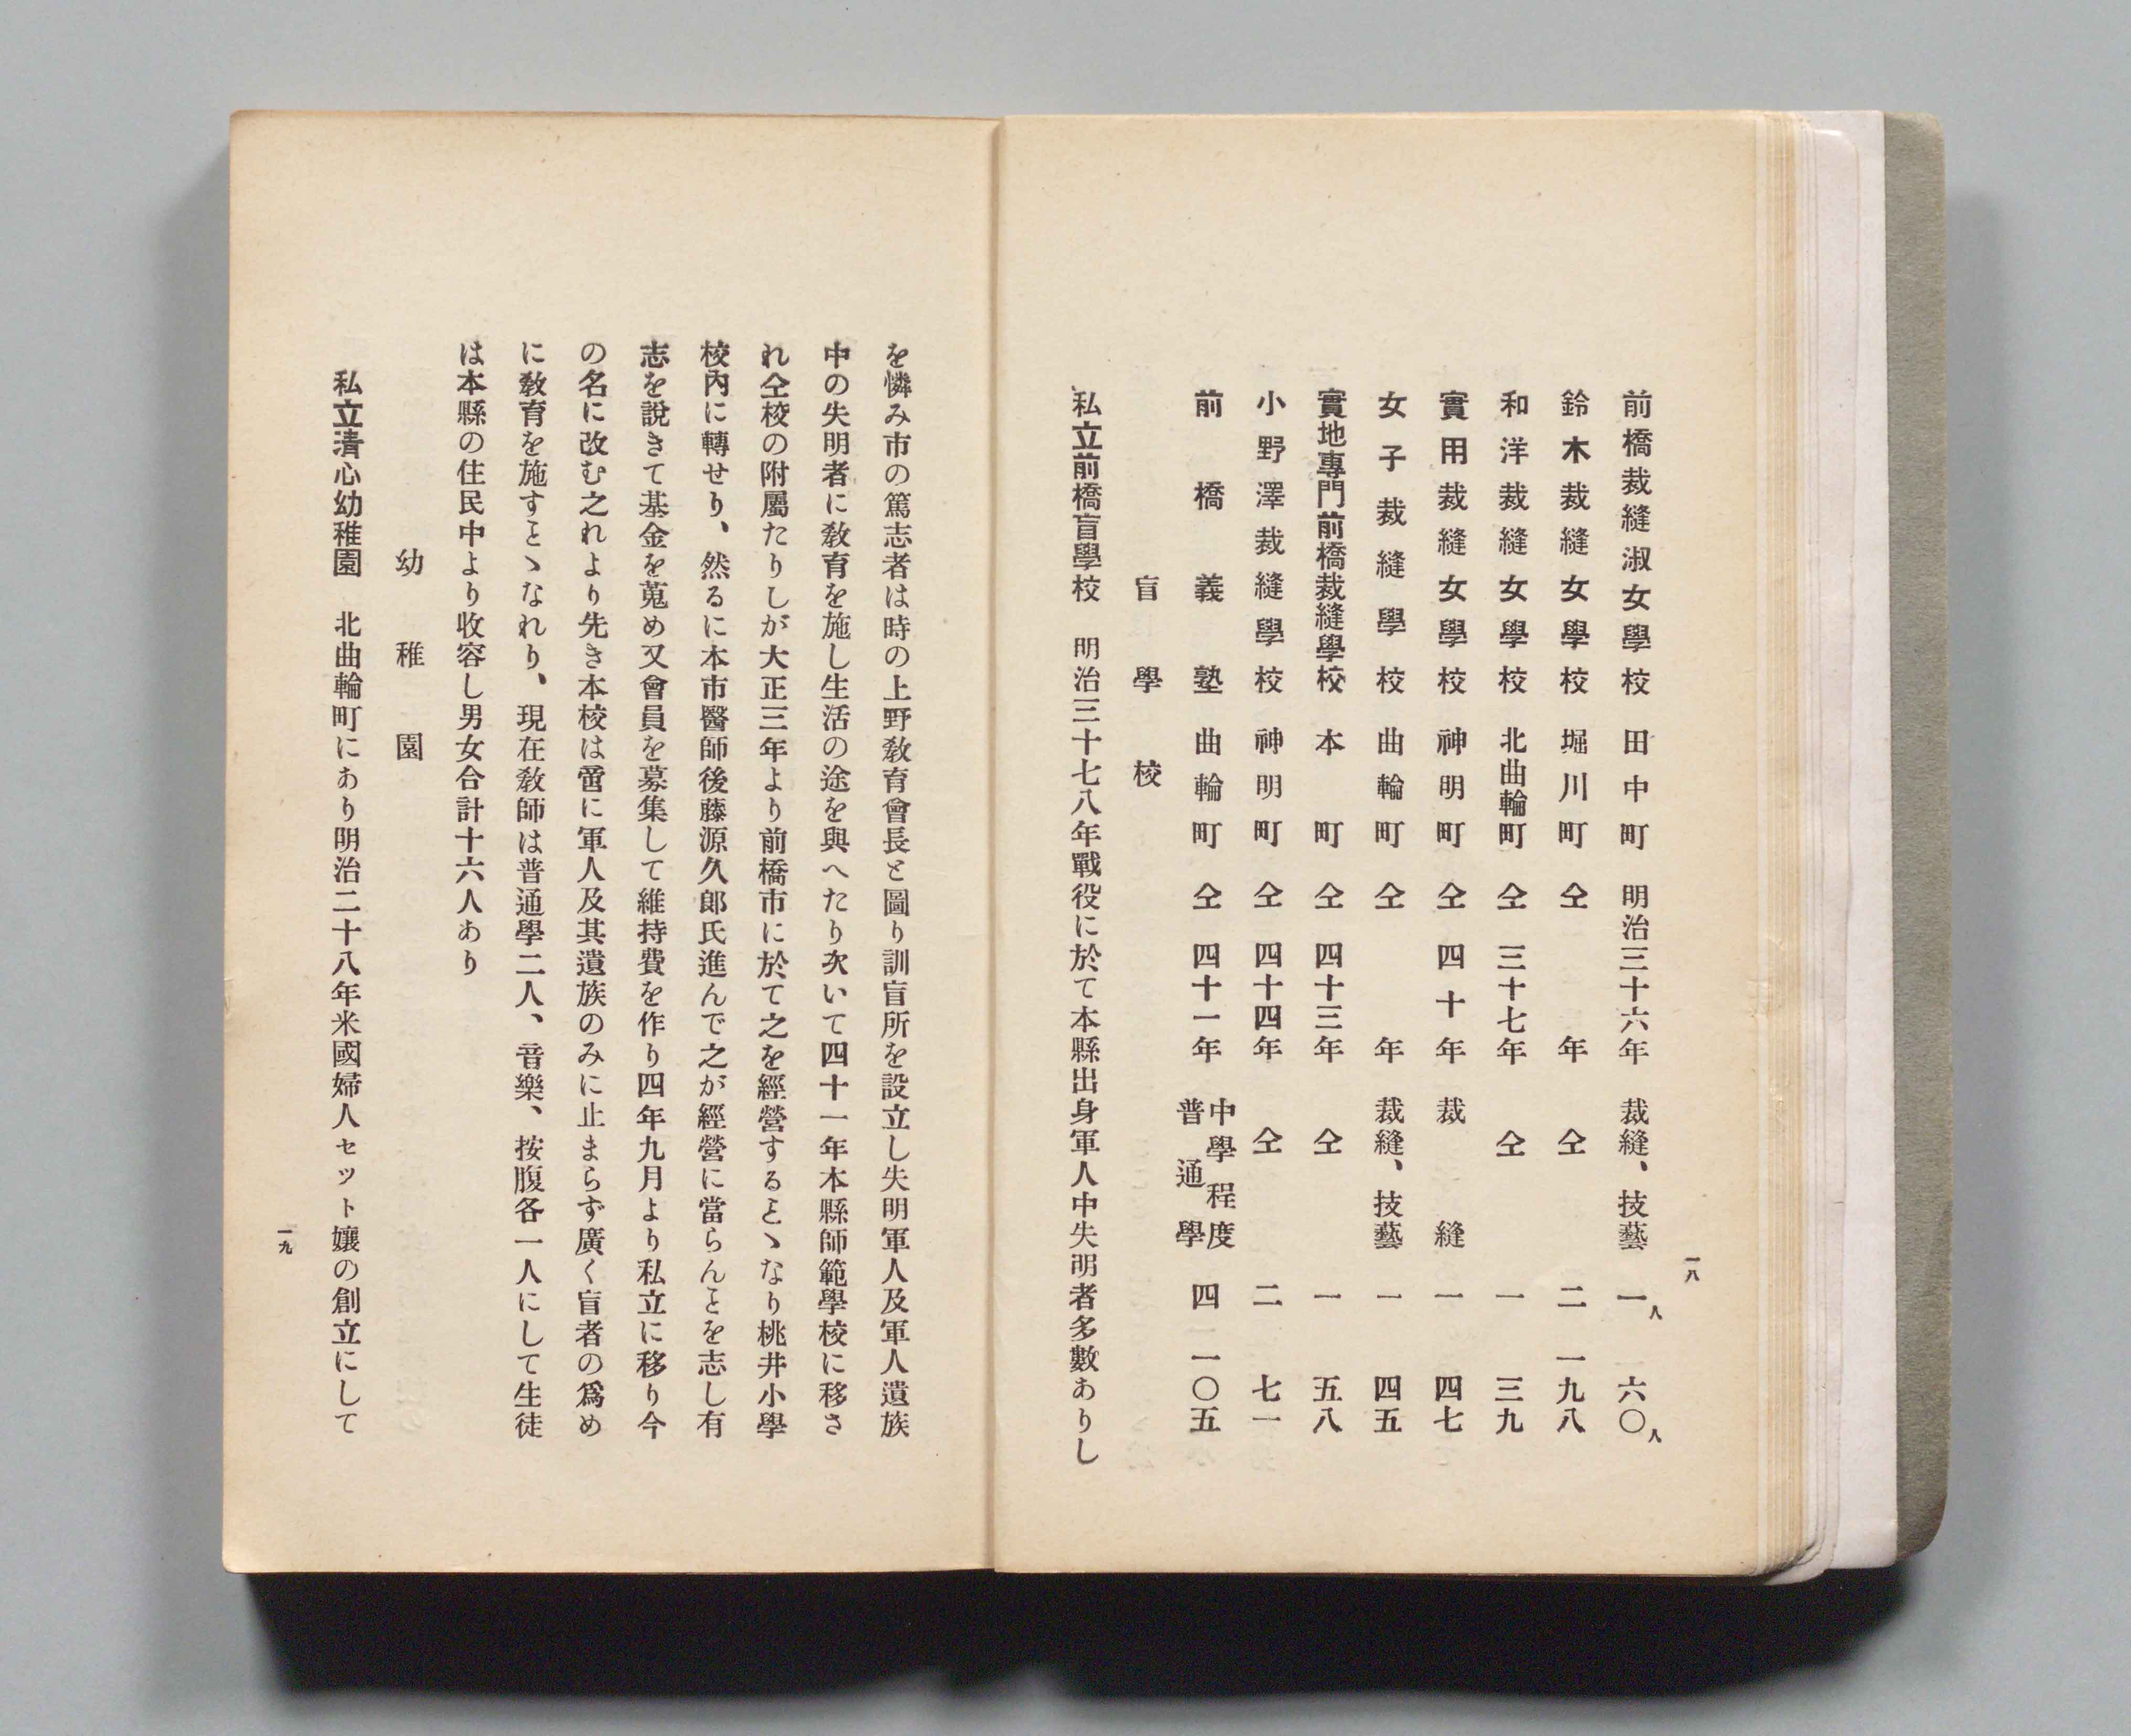 一八
前橋裁縫淑女學校 田中町 明治三十六年 裁縫、技藝 一人 六〇人
鈴木裁縫女學校 堀川町 仝 年 仝 二 一九八
和洋裁縫女學校 北曲輪町 仝 三十七年 仝 一 三九
實用裁縫女學校 神明町 仝 四十年 裁縫 一 四七
女子裁縫學校 曲輪町 仝 年 裁縫、技藝 一 四五
實地專門前橋裁縫學校 本町 仝 四十三年 仝 一 五八
小野澤裁縫學校 神明町 仝 四十四年 仝 二 七一
前橋義塾 曲輪町 仝 四十一年 中學程度普通學 四 一〇五
盲學校
私立前橋盲學校 明治三十七八年戰役に於て本縣出身軍人中失明者多數ありし
を憐み市の篤志者は時の上野敎育會長と圖り訓盲所を設立し失明軍人及軍人遺族
中の失明者に敎育を施し生活の途を與へたり次いて四十一年本縣師範學校に移さ
れ仝校の附屬たりしが大正三年より前橋市に於て之を經營するとゝなり桃井小學
校內に轉せり、然るに本市醫師後藤源久郎氏進んで之が經營に當らんとを志し有
志を說きて基金を蒐め又會員を募集して維持費を作り四年九月より私立に移り今
の名に改む之れより先き本校は啻に軍人及其遺族のみに止まらず廣く盲者の爲め
に敎育を施すとゝなれり、現在敎師は普通學二人、音樂、按腹各一人にして生徒
は本縣の住民中より收容し男女合計十六人あり
幼稚園
私立淸心幼稚園 北曲輪町にあり明治二十八年米國婦人セット孃の創立にして
一九